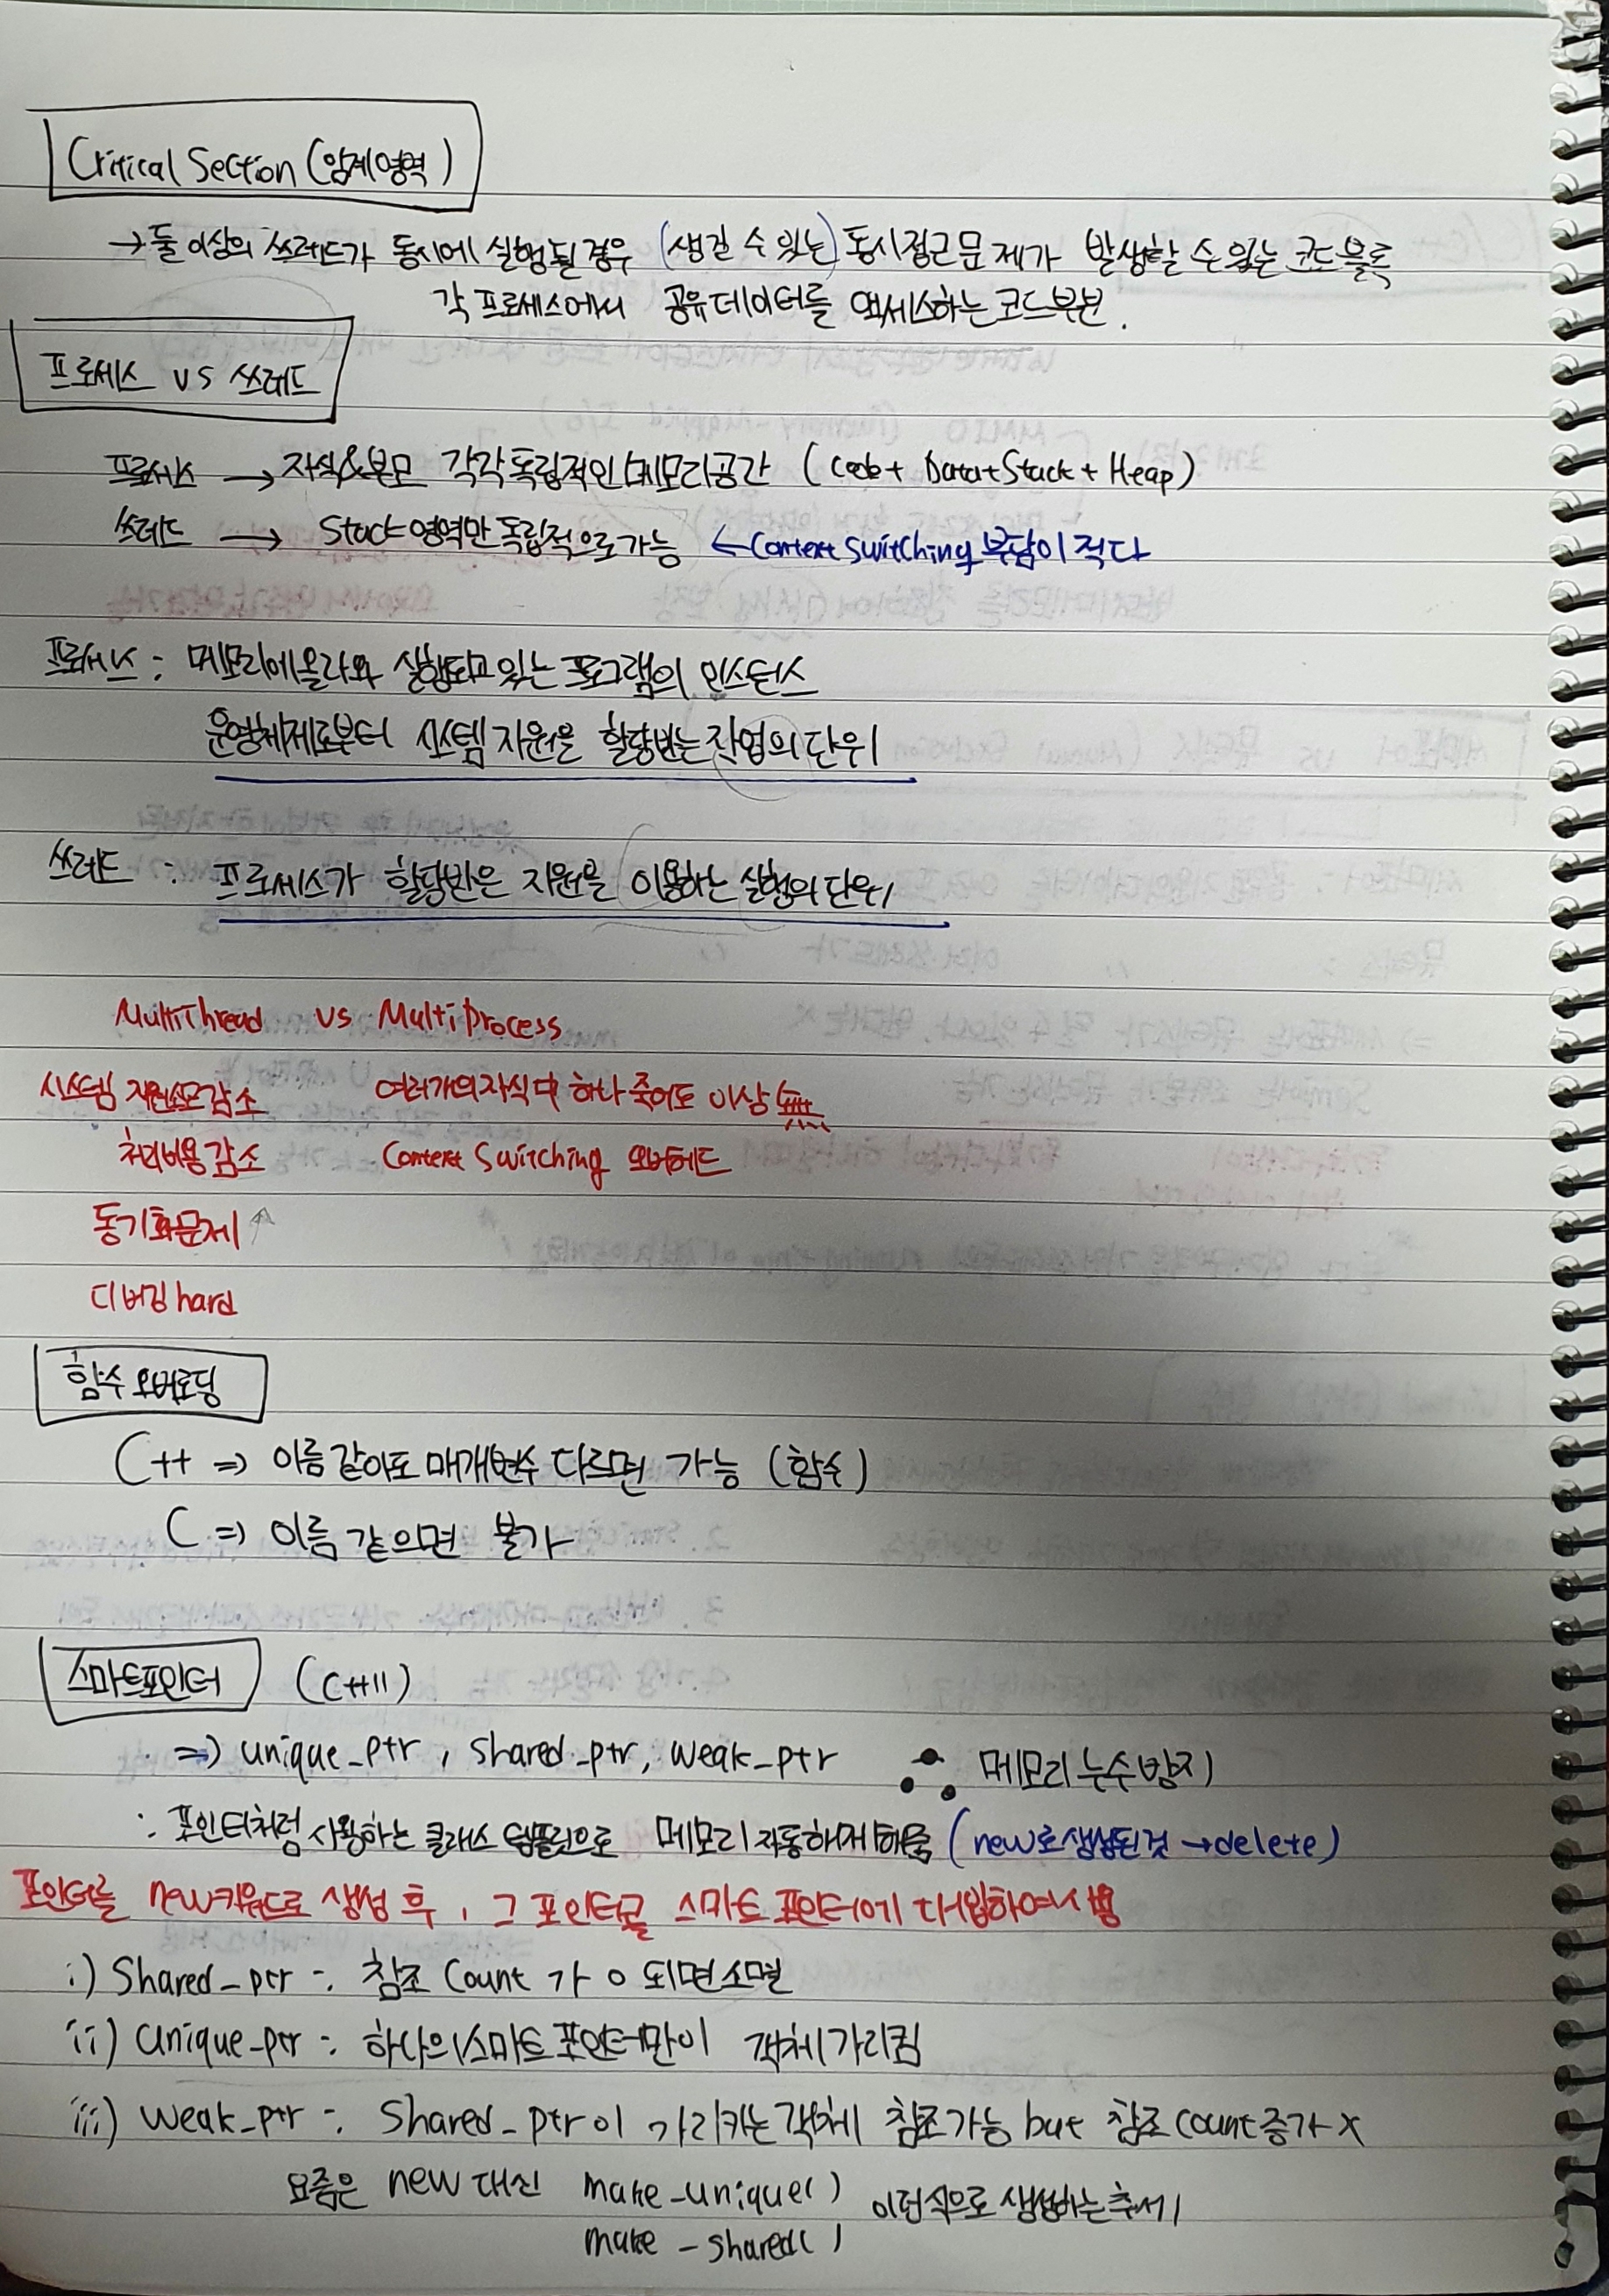 Critical Section (임계영역)
→ 둘 이상의 쓰레드가 동시에 실행될 경우 (생길 수 있는) 동시접근 문제가 발생할 수 있는 코드블록
각 프로세스에서 공유데이터를 액세스하는 코드부분.
프로세스 vs 쓰레드
프로세스 → 자식&부모 각각 독립적인 메모리공간 (Code + Data + Stack + Heap)
쓰레드 → Stack 영역만 독립적으로 가능 ← Context Switching 부담이 적다
프로세스 : 메모리에 올라와 실행되고 있는 프로그램의 인스턴스
운영체제로부터 시스템 자원을 할당받는 작업의 단위
쓰레드 : 프로세스가 할당받은 자원을 이용하는 실행의 단위
MultiThread vs MultiProcess
시스템 자원소모 감소 여러개의 자식 中 하나 죽어도 이상 無
처리비용 감소 Context Switching 오버헤드
동기화문제 ↑
디버깅 hard
함수 오버로딩
C++ => 이름 같아도 매개변수 다르면 가능 (함수)
C => 이름 같으면 불가
스마트포인터 (C++11)
=> unique_ptr, shared_ptr, weak_ptr ∴ 메모리 누수 방지
: 포인터처럼 사용하는 클래스 템플릿으로 메모리 자동해제해줌 (new로 생성된것 → delete)
포인터를 new키워드로 생성 후, 그 포인터를 스마트 포인터에 대입하여 사용
i) Shared_ptr : 참조 Count 가 0 되면 소멸
ii) unique_ptr : 하나의 스마트 포인터만이 객체 가리킴
iii) weak_ptr : Shared_ptr이 가리키는 객체 참조가능 but 참조 count 증가 x
요즘은 new 대신 make_unique() 이런식으로 생성하는 추세
make_shared()